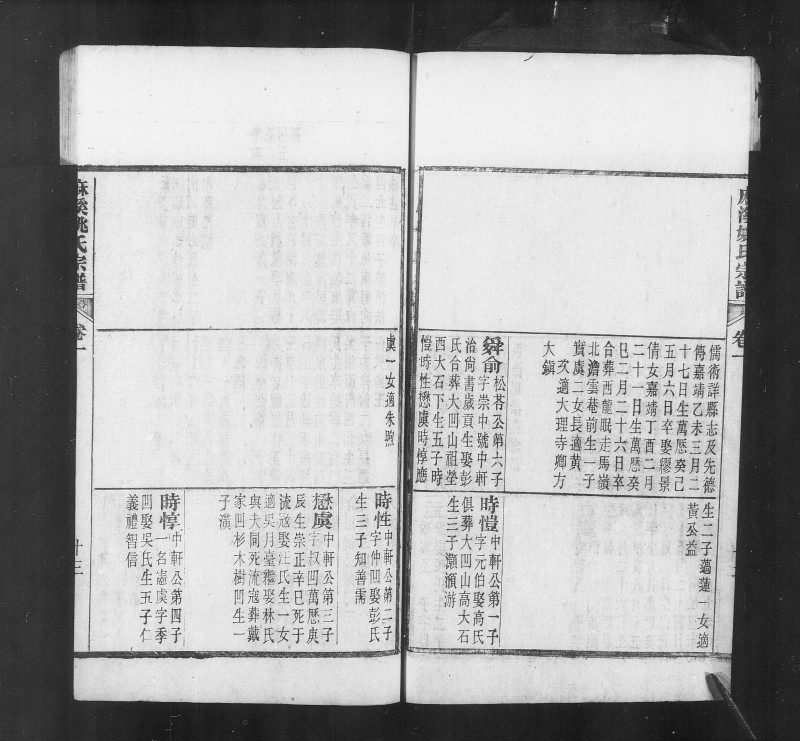 麻溪姚氏宗譜
卷一
儒術詳縣志及先德
傳嘉靖乙未三月二
十七日生萬歷癸己
五月六日卒娶繆景
倩女嘉靖丁酉二月
二十一日生萬歷癸
巳二月二十六日卒
合葬西龍眠走馬嶺
北澹雲巷前生一嶺
實虞二女長適黃
次適大理寺卿方
大鎮
生二子邁蓮一女適
黃公益
舜俞 松茖公第六子
字崇中號中軒
治尙書歲貢生娶彭
氏合葬大凹山祖塋
西大石下生五子時
愷時性懋虞時惇應
虞一女適朱煦
時愷 中軒公第一子
字元伯娶高氏
俱葬大凹山高大石
生三子灝澬游
時性 中軒公第二子
字仲凹娶彭氏
生三子知善需
懋虞 中軒公第三子
字叔凹萬歷庚
辰生崇正辛巳死于
流寇娶汪氏生一女
適吳月臺繼娶林氏
與大同死流寇葬戴
家凹杉木樹凹生一
子漢
時惇 中軒公第四子
一名憲虞字季
凹娶吳氏生五子仁
義禮智信
麻溪姚氏宗譜
卷一
十三